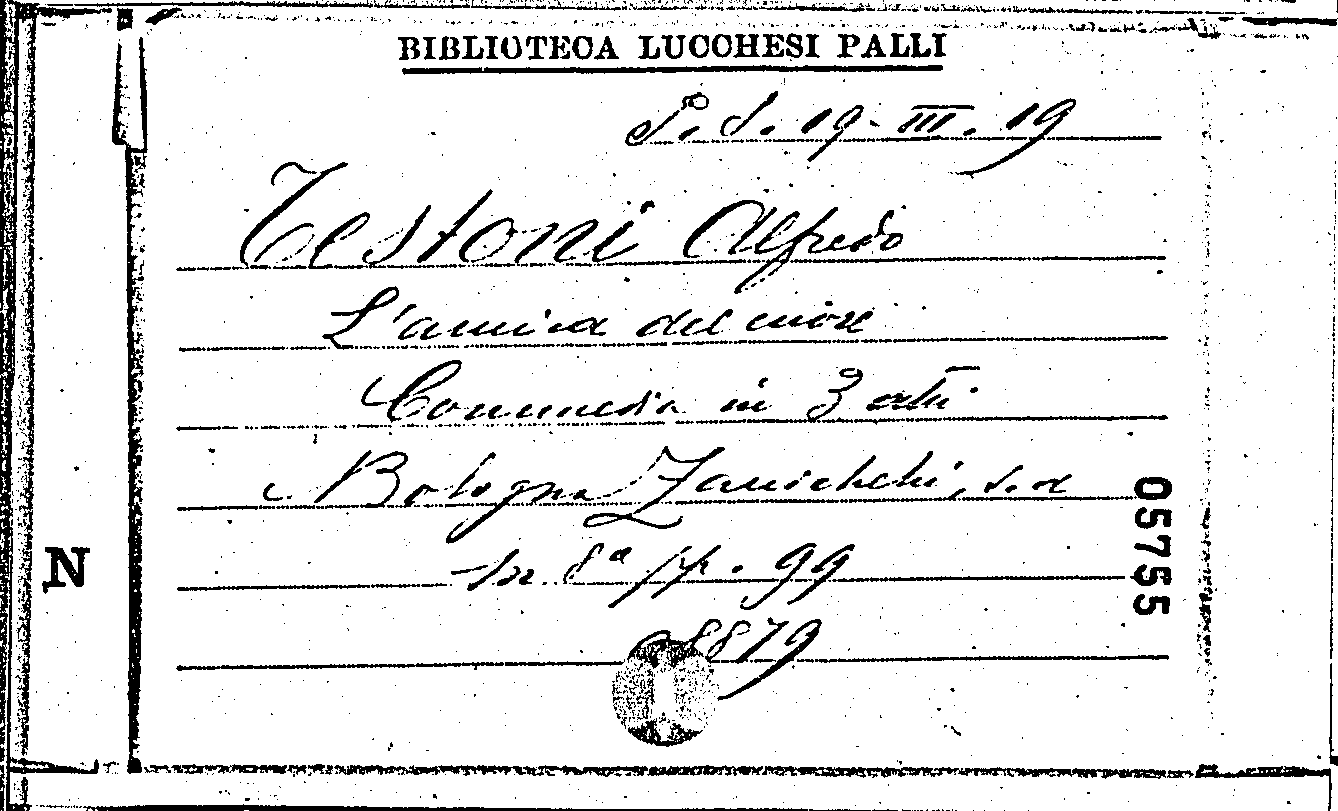 BIBLIOTECA LUCCHESI PALLI
S. d. 19-III. 19
Testoni Alfredo
L'amica del cuore
Commedia in 3 atti
Bologna Zanichelli, s.d
In 8ª pp. 99
8879
05755
N